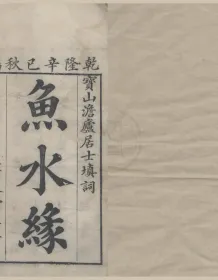 乾隆辛巳秋
寶山澹廬居士填詞
魚水緣